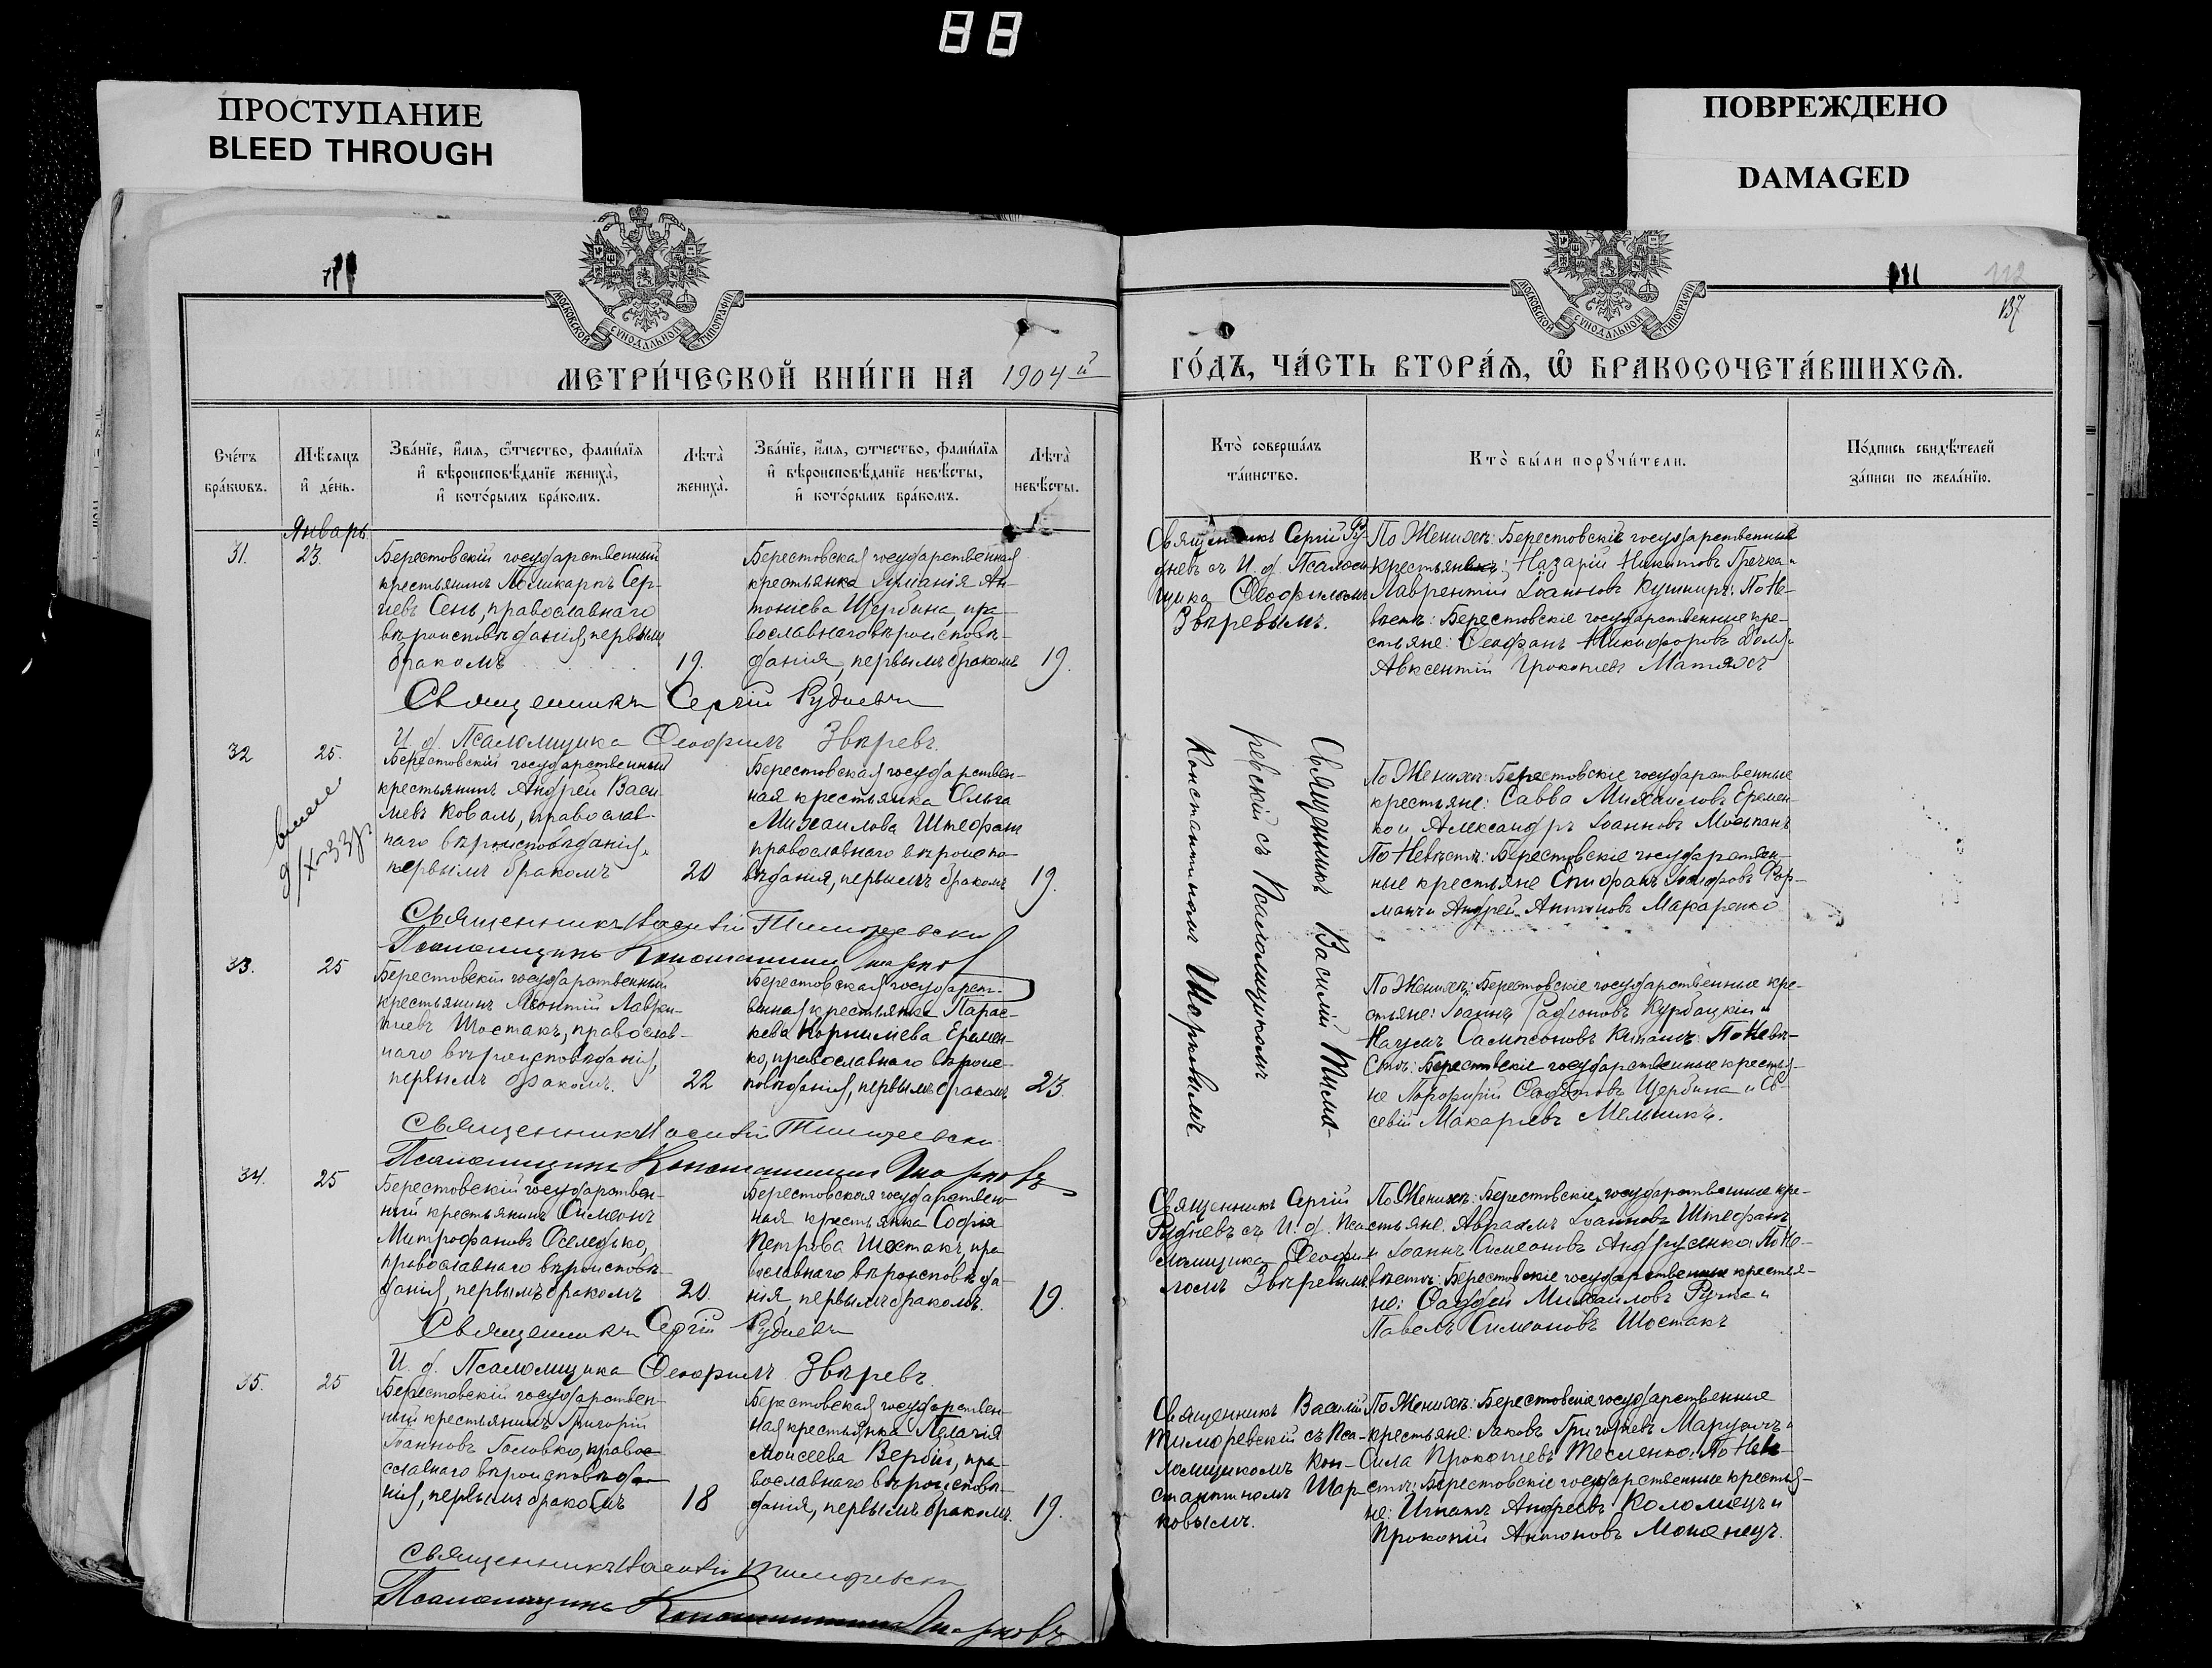 88
ПРОСТУПАНИЕ
BLEED THROUGH
ПОВРЕЖДЕНО
DAMAGED
МОСКОВСКОЙ СУНОДАЛЬНОЙ ТИПОГРАФІИ
МОСКОВСКОЙ СУНОДАЛЬНОЙ ТИПОГРАФІИ
112
137
МЕТРИ́ЧЕСКОЙ КНИ́ГИ НА 1904й
ГО́ДЪ, ЧА́СТЬ ВТОРА́Я, Ѡ҆ БРАКОСОЧЕТА́ВШИХСЯ.
Сче́тъ
бра́ковъ.
Мѣ́сяцъ
и҆ де́нь.
Зва́нїе, и҆́мя, ѻ҆́тчество, фами́лїя
и҆ вѣроисповѣ́данїе жениха̀,
и҆ кото́рымъ бра́комъ.
Лѣта̀
жениха̀.
Зва́нїе, и҆́мя, ѻ҆тчество, фами́лїя
и҆ вѣроисповѣ́данїе невѣ́сты,
и҆ кото́рымъ бра́комъ.
Лѣта̀
невѣ́сты.
Кто̀ соверша́лъ
та́инство.
Кто̀ бы́ли порꙋчи́тели.
По́дпись свидѣ́телей
за́писи по жела́нїю.
Январь
31.
23.
Берестовскій государственный
крестьянинъ Поликарпъ Сер-
гіевъ Сень, православнаго
вѣроисповѣданія, первымъ
бракомъ
19.
Берестовская государственная
крестьянка Ан-
тоніева Щербина, пра-
вославнаго вѣроисповѣ-
данія, первымъ бракомъ
19.
Священникъ Сергій Руд-
невъ съ И. д. Псалом-
щика Ѳеофиломъ
Звѣревымъ.
По Женихѣ: Берестовскіе государственные
крестьяне: Назарій Никитовъ Гречка и
Лаврентій Іоанновъ Кушниръ. По Не-
вѣстѣ: Берестовскіе государственные кре-
стьяне: Ѳеофанъ Никифоровъ
Авксентій Прокопіевъ Матяхъ
Священникъ Сергій Рудневъ
И. д. Псаломщика Ѳеофилъ Звѣревъ.
32
25.
Берестовскій государственный
крестьянинъ Андрей Васи-
ліевъ Коваль, православ-
наго вѣроисповѣданія,
первымъ бракомъ
20
Берестовская государствен-
ная крестьянка Ольга
Михаилова Штефанъ
православнаго вѣроиспо-
вѣданія, первымъ бракомъ
19.
Священникъ Василій Тимо-
ревскій съ Псаломщикомъ
Константиномъ Шарковымъ
По Женихѣ: Берестовскіе государственные
крестьяне: Савва Михаиловъ Еремен-
ко и Александръ Іоанновъ
По Невѣстѣ: Берестовскіе государствен-
ные крестьяне Епифанъ Фор-
манъ и Андрей Антоновъ Макаренко
Священникъ Василій Тиморевскій
Псаломщикъ Константинъ Шарковъ
33.
25
Берестовскій государственный
крестьянинъ Леонтій Лаврен-
тіевъ Шостакъ, православ-
наго вѣроисповѣданія,
первымъ бракомъ.
22
Берестовская государст-
венная крестьянка Парас-
кева Корнилиева Еремен-
ко, православнаго вѣроис-
повѣданія, первымъ бракомъ
23.
По Женихѣ: Берестовскіе государственные кре-
стьяне: Іоаннъ Радіоновъ Курбацкій и
Наумъ Сампсоновъ По Невѣ-
стѣ: Берестовскіе государственные крестья-
не Порфирій Ѳедотовъ Щербина и Ев-
севій Макаріевъ Мельникъ.
Священникъ Василій Тиморевскій
Псаломщикъ Константинъ Шарковъ
34.
25
Берестовскій государствен-
ный крестьянинъ Симеонъ
Митрофановъ Оселедько,
православнаго вѣроисповѣ-
данія, первымъ бракомъ
20.
Берестовская государствен-
ная крестьянка Софія
Петрова Шостакъ, пра-
вославнаго вѣроисповѣда-
нія, первымъ бракомъ.
19.
Священникъ Сергій
Рудневъ съ И. д. Пса-
ломщика Ѳеофи-
ломъ Звѣревымъ
По Женихѣ: Берестовскіе государственные кре-
стьяне. Авраамъ Іоанновъ Штефанъ
и Іоаннъ Симеоновъ Андрусенко. По Не-
вѣстѣ: Берестовскіе государственные крестья-
не: Ѳаддей Михаиловъ и
Павелъ Симеоновъ Шостакъ
Священникъ Сергій Рудневъ
И. д. Псаломщика Ѳеофилъ Звѣревъ.
35.
25
Берестовскій государствен-
ный крестьянинъ Григорій
Іоанновъ Головко, право-
славнаго вѣроисповѣда-
нія, первымъ бракомъ
18
Берестовская государствен-
ная крестьянка Пелагія
Моисеева Вербій, пра-
вославнаго вѣроисповѣ-
данія, первымъ бракомъ.
19.
Священникъ Василій
Тиморевскій съ Пса-
ломщикомъ Кон-
стантиномъ Шар-
ковымъ.
По Женихѣ: Берестовскіе государственные
крестьяне: Іаковъ Григоріевъ и
Сила Прокопіевъ Тесленко. По Невѣ-
стѣ: Берестовскіе государственные крестья-
не: Игнатъ Андреевъ Коломіецъ и
Прокопій Антоновъ
Священникъ Василій Тиморевскій
Псаломщикъ Константинъ Шарковъ